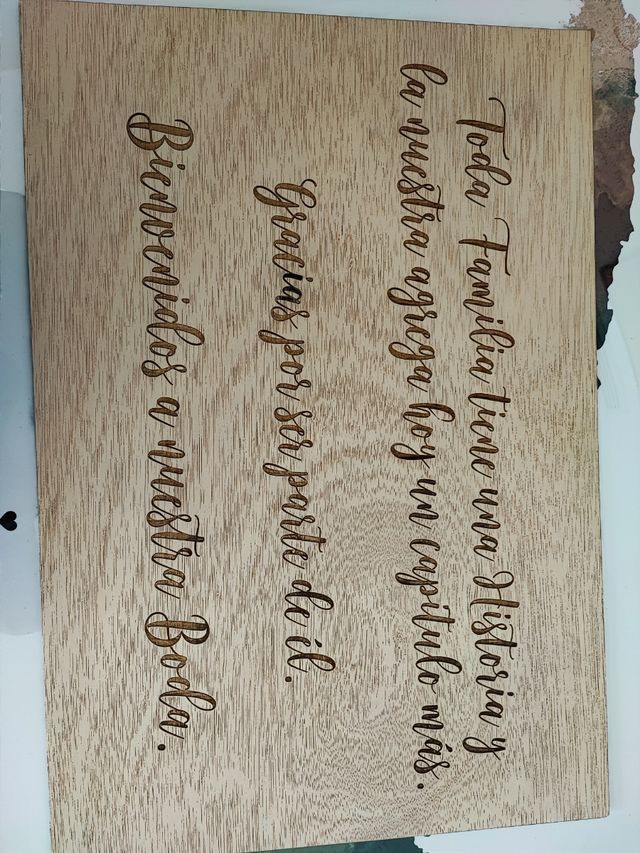 Toda Familia tiene una Historia y
la nuestra agrega hoy un capítulo más.
Gracias por ser parte de él.
Bienvenidos a nuestra Boda.